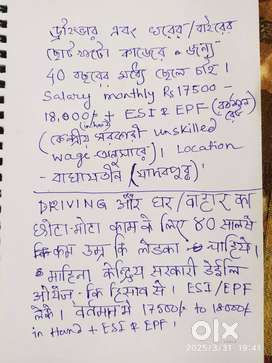 ড্রাইভার এবং ঘরের/বাইরের
ছোট খাটো কাজের জন্য
40 বছরের মধ্যে ছেলে চাই।
Salary monthly Rs 17500 -
18,000/- + ESI & EPF
(in hand)
(কেন্দ্রীয় সরকারী unskilled
wage অনুসারে)। Location
- বাঘাযতীন (যাদবপুর)
DRIVING और घर/बाहर का
छोटा-मोटा काम के लिए 40 साल से
कम उम्र कि लेडका चाहिये।
माहिना केन्द्रिय सरकारी डेईलि
ओयेज-कि हिसाब से। ESI/EPF
लेके। वर्तमान में 17500/- to 18000/-
in Hand + ESI & EPF.
olx
2025/3/31 19:41